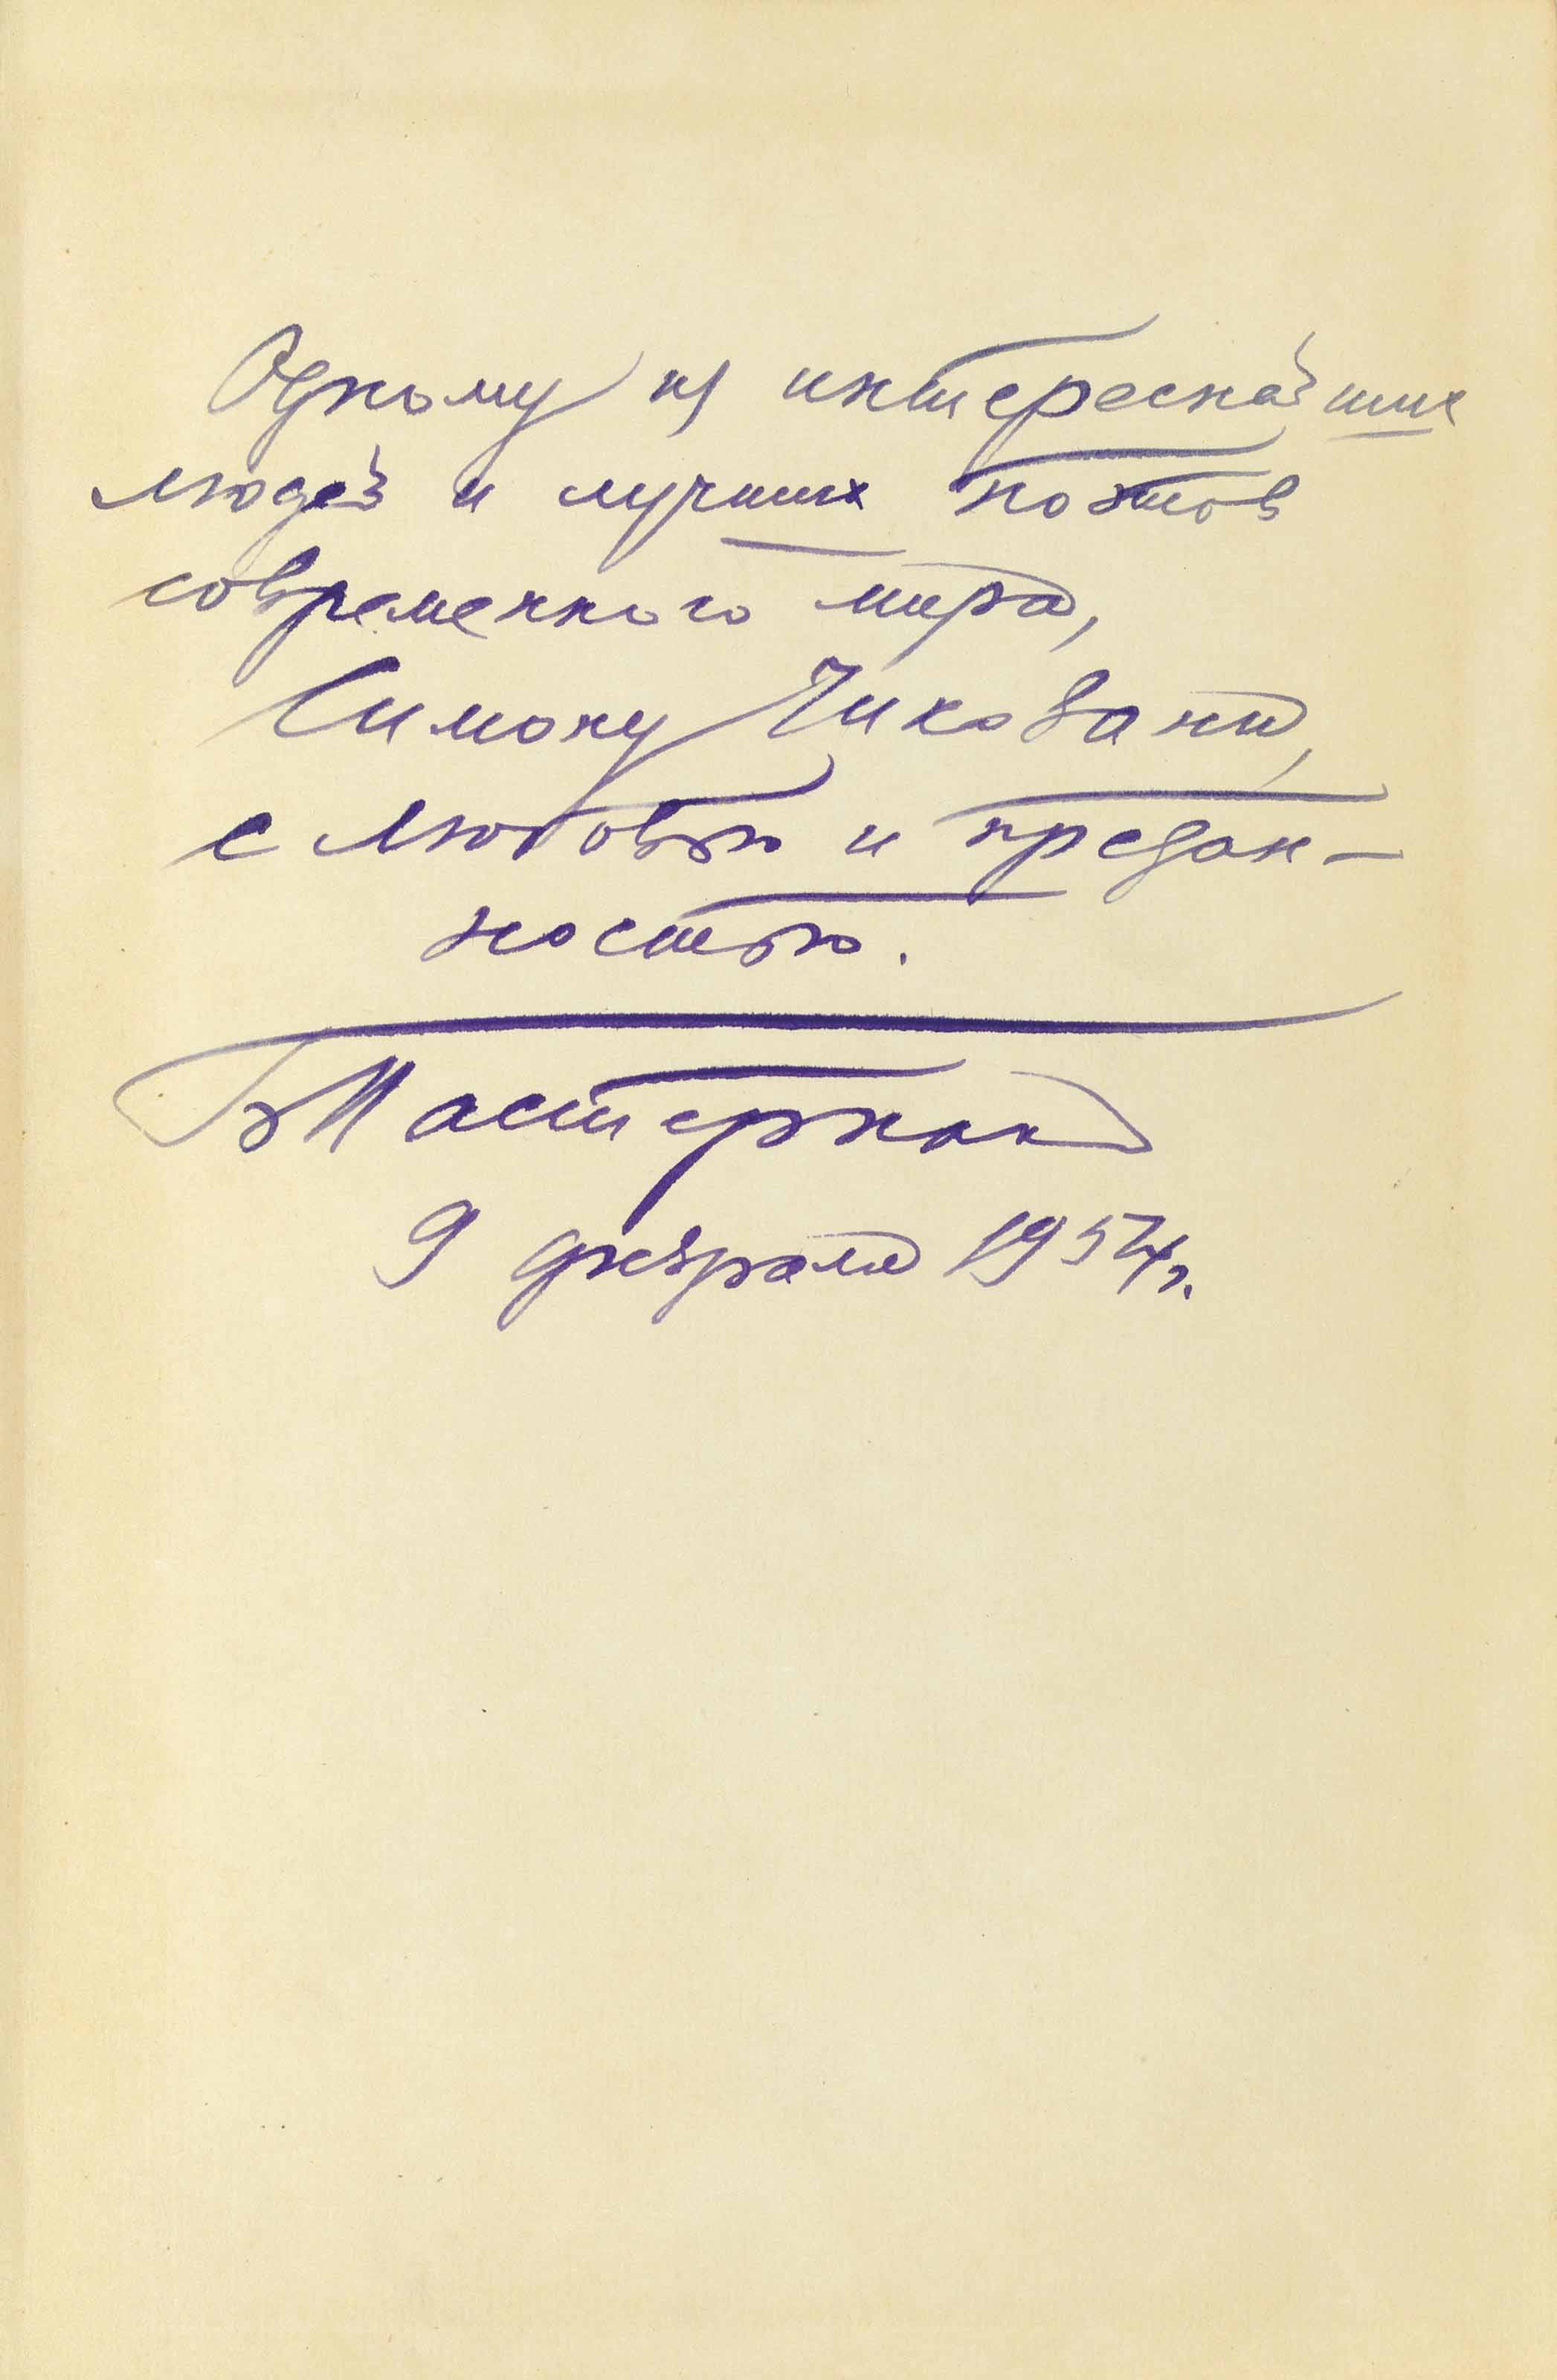 Одному из интереснейших
людей и лучших поэтов
современного мира,
Симону Чиковани,
с любовью и предан-
ностью.
БПастернак
9 февраля 1954г.